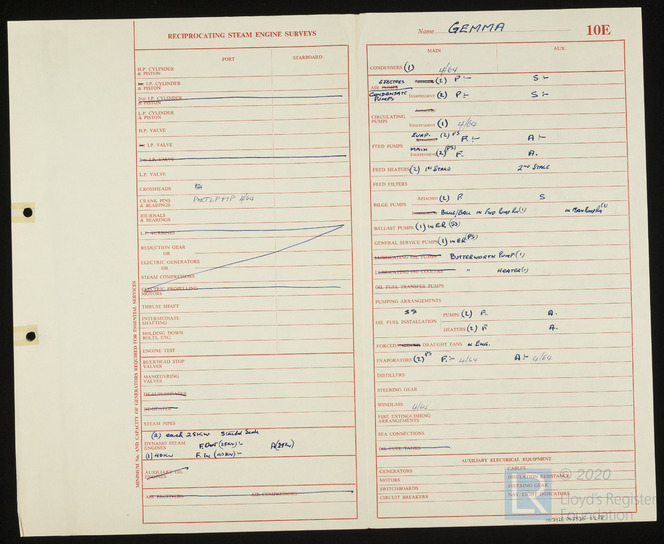 RECIPROCATING STEAM ENGINE SURVEYS
PORT STARBOARD
H.P. CYLINDER & PISTON
1st I.P. CYLINDER & PISTON
2nd I.P. CYLINDER & PISTON
L.P. CYLINDER & PISTON
H.P. VALVE
1st I.P. VALVE
2nd I.P. VALVE
L.P. VALVE
CROSSHEADS
CRANK PINS & BEARINGS 4/64
JOURNALS & BEARINGS
L.P. TURBINE
REDUCTION GEAR
OR
ELECTRIC GENERATORS
OR
STEAM COMPRESSORS
ELECTRIC PROPELLING MOTORS
THRUST SHAFT
INTERMEDIATE SHAFTING
HOLDING DOWN BOLTS, ETC.
ENGINE TEST
BULKHEAD STOP VALVES
MANŒUVRING VALVES
DESUPERHEATER
RE-HEATER
STEAM PIPES
MINIMUM No. AND CAPACITY OF GENERATORS REQUIRED FOR ESSENTIAL SERVICES
(2) each 25KW
DYNAMO STEAM ENGINES F. Port (25KW):- A (25KW)
(1) 40KW F. In (40KW):-
AUXILIARY OIL ENGINES
AIR RECEIVERS AIR COMPRESSORS
Name GEMMA 10E
MAIN AUX.
CONDENSERS (1) 4/64
AIR PUMPS EJECTORS (2) P:- S:-
CONDENSATE PUMPS Independent (2) P:- S:-
CIRCULATING PUMPS Independent (1) 4/64
FEED PUMPS EVAP. (2) PS F:- A:-
MAIN Independent (2) (PS) F. A.
FEED HEATERS (2) 1ST STAGE 2ND STAGE
FEED FILTERS
BILGE PUMPS Attached (2) P S
BILGE/BALL IN FWD PUMP RM (1) IN MAIN PUMP RM (1)
BALLAST PUMPS (1) IN ER (SS)
GENERAL SERVICE PUMPS (1) IN ER (PS)
LUBRICATING OIL PUMPS BUTTERWORTH PUMP (1)
LUBRICATING OIL COOLERS " HEATER (1)
OIL FUEL TRANSFER PUMPS
PUMPING ARRANGEMENTS
OIL FUEL INSTALLATION SS PUMPS (2) F. A.
HEATERS (2) F. A.
FORCED DRAUGHT FANS
EVAPORATORS (2) PS F:- 4/64 A:- 4/64
DISTILLERS
STEERING GEAR
WINDLASS 4/64
FIRE EXTINGUISHING ARRANGEMENTS
SEA CONNECTIONS
OIL FUEL TANKS
AUXILIARY ELECTRICAL EQUIPMENT
GENERATORS CABLES
MOTORS INSULATION RESISTANCE
SWITCHBOARDS STEERING GEAR
CIRCUIT BREAKERS NAV. LIGHT INDICATORS
© 2020
Lloyd's Register
Foundation